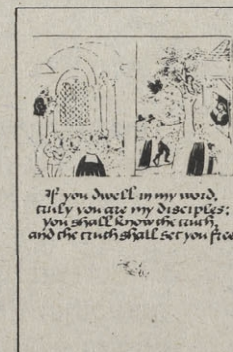 If you dwell in my word,
truly you are my disciples;
you shall know the truth,
and the truth shall set you free